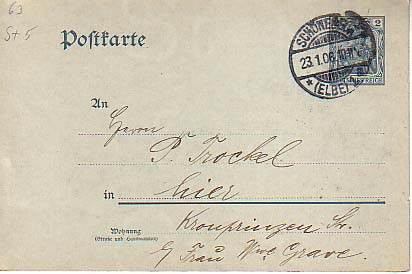 63
St 5
Postkarte
2
SCHÖNEBECK
23.1.06. 10-11V.
* (ELBE)
An
Herrn
P. Trockel
in hier
Kronprinzen Str.
Wohnung
(Straße und Hausnummer)
b/ Frau Wwe Grave.